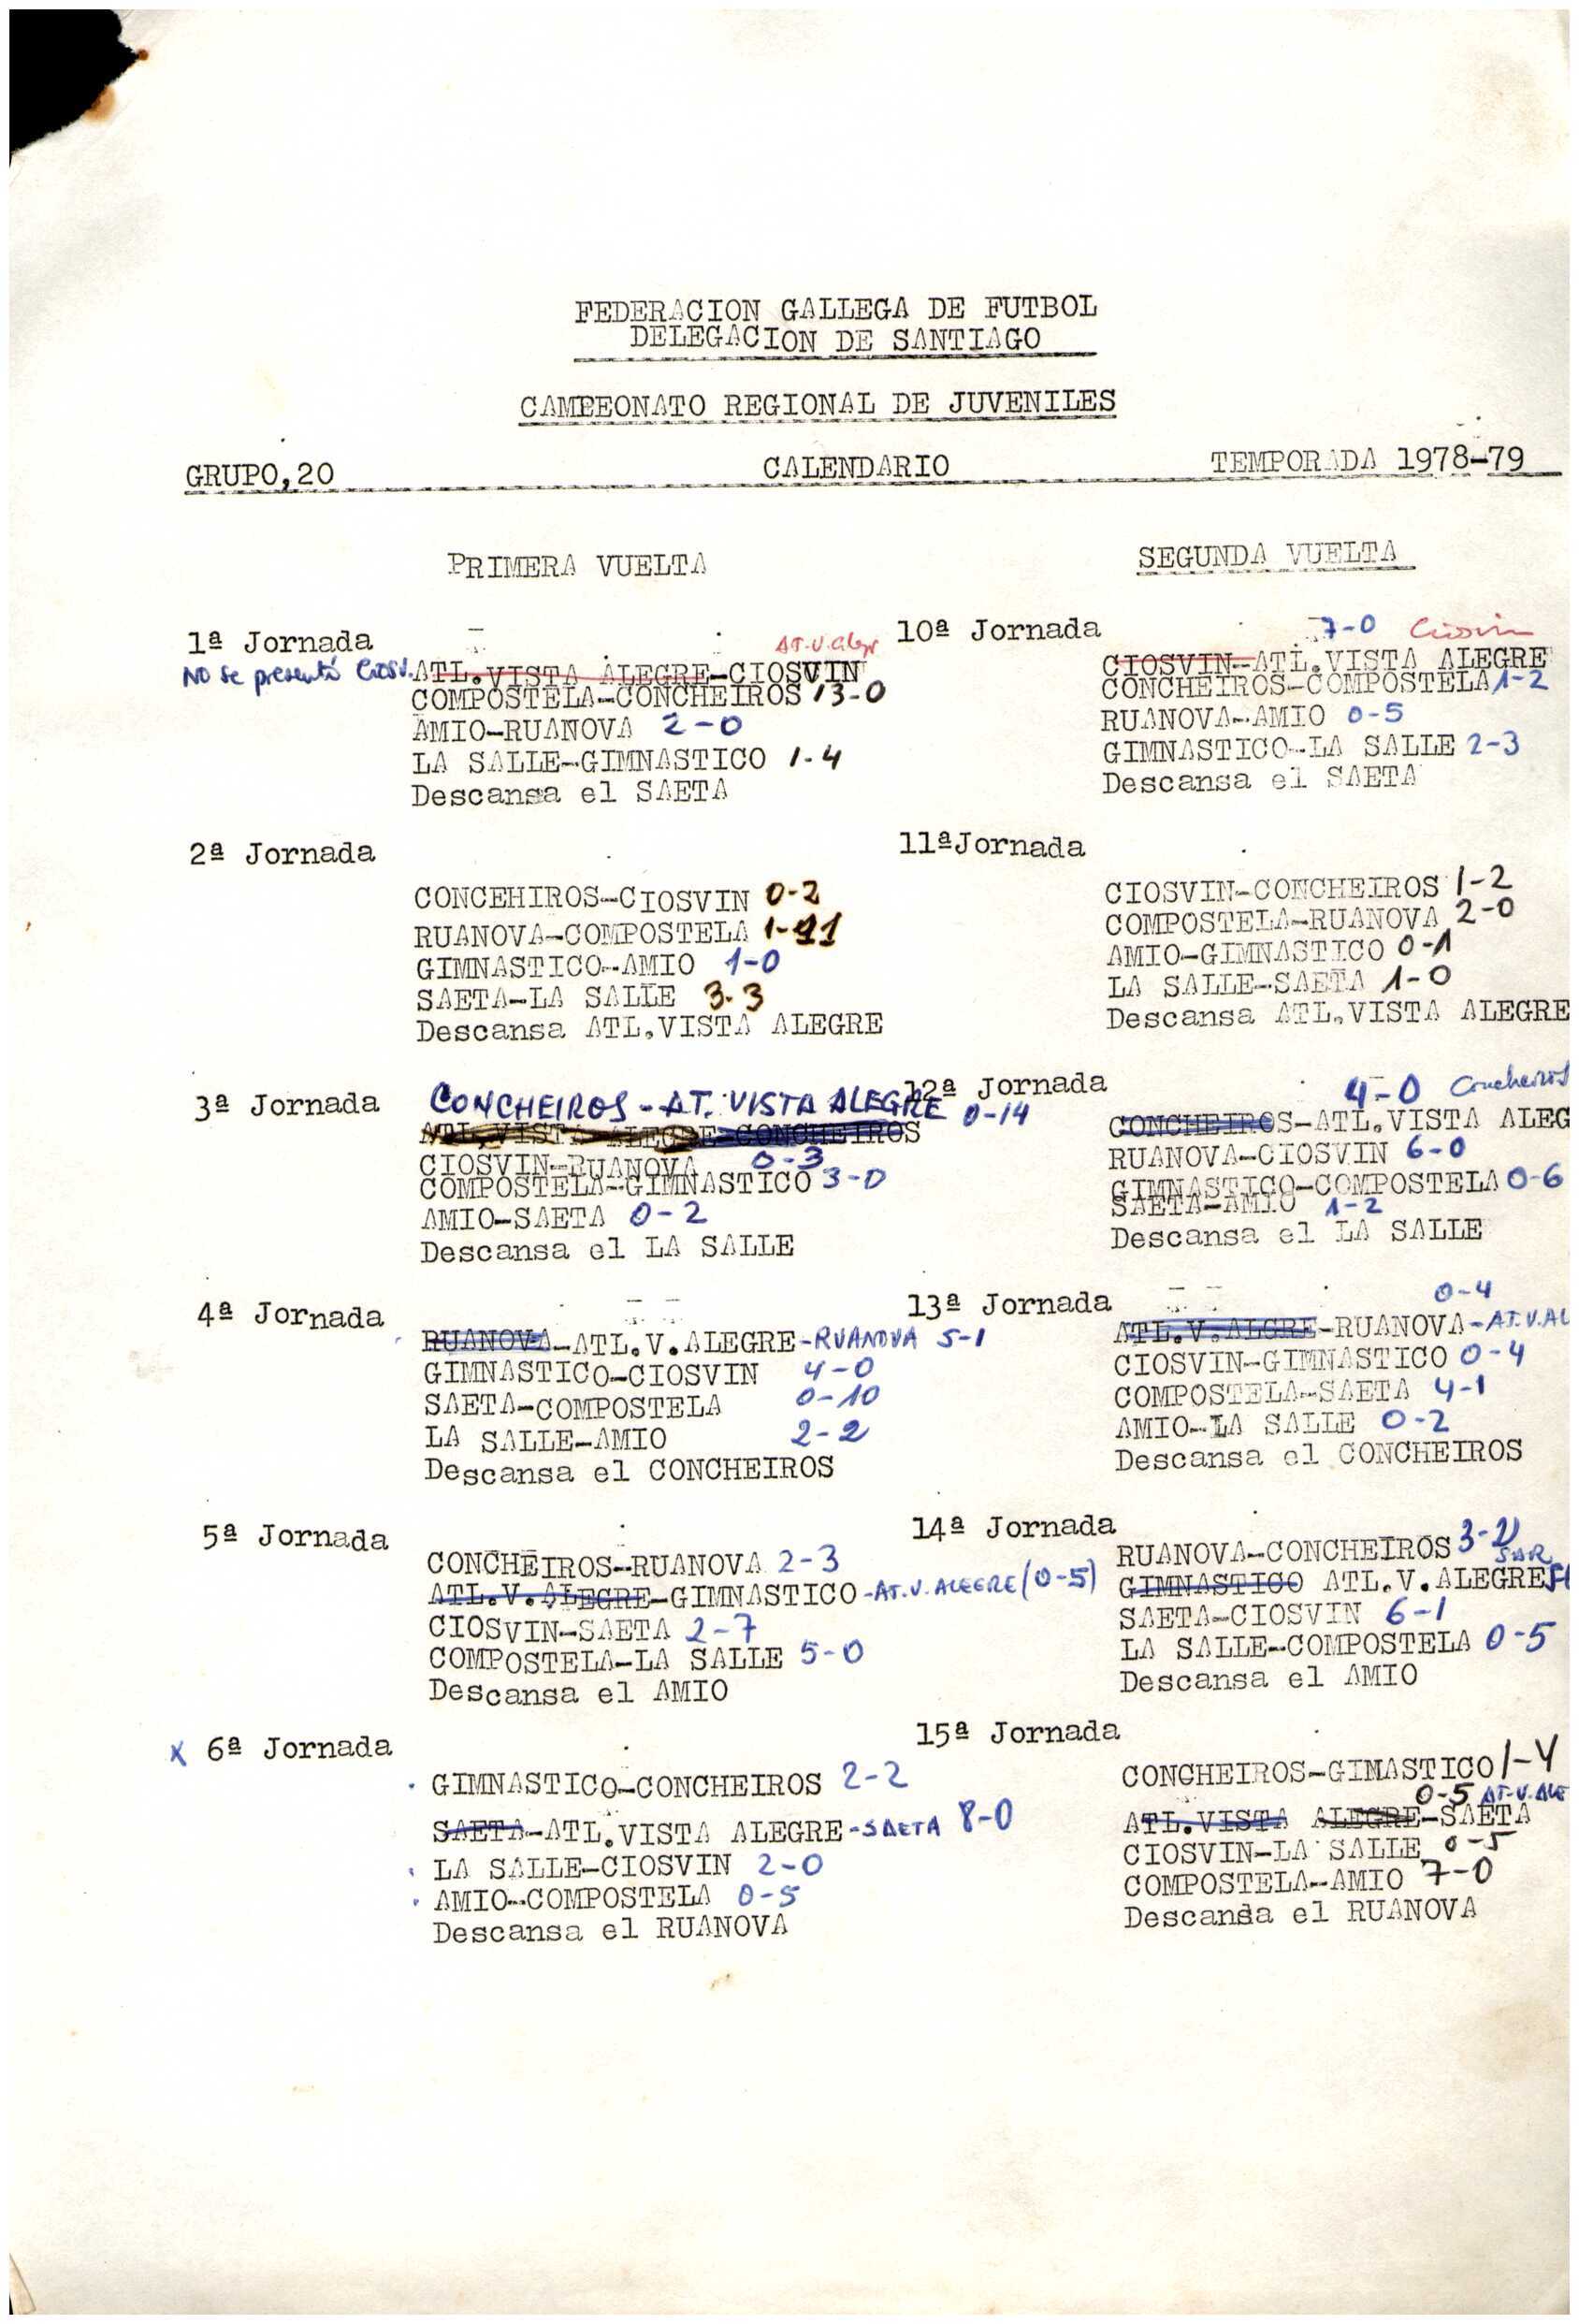 FEDERACION GALLEGA DE FUTBOL
DELEGACION DE SANTIAGO
CAMPEONATO REGIONAL DE JUVENILES
GRUPO,20 CALENDARIO TEMPORADA 1978-79
PRIMERA VUELTA
1ª Jornada AT.V.
No se presentó ATL.VISTA ALEGRE-CIOSVIN
COMPOSTELA-CONCHEIROS 13-0
AMIO-RUANOVA 2-0
LA SALLE-GIMNASTICO 1-4
Descansa el SAETA
2ª Jornada
CONCEHIROS-CIOSVIN 0-2
RUANOVA-COMPOSTELA 1-11
GIMNASTICO-AMIO 1-0
SAETA-LA SALLE 3-3
Descansa ATL.VISTA ALEGRE
3ª Jornada CONCHEIROS-AT. VISTA ALEGRE 0-14
ATL.VISTA ALEGRE-CONCHEIROS
CIOSVIN-RUANOVA 0-3
COMPOSTELA-GIMNASTICO 3-0
AMIO-SAETA 0-2
Descansa el LA SALLE
4ª Jornada
RUANOVA-ATL.V.ALEGRE-RUANOVA 5-1
GIMNASTICO-CIOSVIN 4-0
SAETA-COMPOSTELA 0-10
LA SALLE-AMIO 2-2
Descansa el CONCHEIROS
5ª Jornada
CONCHEIROS-RUANOVA 2-3
ATL.V.ALEGRE-GIMNASTICO-AT.V.ALEGRE (0-5)
CIOSVIN-SAETA 2-7
COMPOSTELA-LA SALLE 5-0
Descansa el AMIO
X 6ª Jornada
GIMNASTICO-CONCHEIROS 2-2
SAETA-ATL.VISTA ALEGRE-SAETA 8-0
LA SALLE-CIOSVIN 2-0
AMIO-COMPOSTELA 0-5
Descansa el RUANOVA
SEGUNDA VUELTA
10ª Jornada 7-0 Ciosvin
CIOSVIN-ATL.VISTA ALEGRE
CONCHEIROS-COMPOSTELA 1-2
RUANOVA-AMIO 0-5
GIMNASTICO-LA SALLE 2-3
Descansa el SAETA
11ªJornada
CIOSVIN-CONCHEIROS 1-2
COMPOSTELA-RUANOVA 2-0
AMIO-GIMNASTICO 0-1
LA SALLE-SAETA 1-0
Descansa ATL.VISTA ALEGRE
12ª Jornada 4-0 Concheiros
CONCHEIROS-ATL.VISTA ALEG
RUANOVA-CIOSVIN 6-0
GIMNASTICO-COMPOSTELA 0-6
SAETA-AMIO 1-2
Descansa el LA SALLE
13ª Jornada 0-4
ATL.V.ALGRE-RUANOVA-AT.V.AL
CIOSVIN-GIMNASTICO 0-4
COMPOSTELA-SAETA 4-1
AMIO-LA SALLE 0-2
Descansa el CONCHEIROS
14ª Jornada
RUANOVA-CONCHEIROS 3-2
SAR
GIMNASTICO ATL.V.ALEGRE
SAETA-CIOSVIN 6-1
LA SALLE-COMPOSTELA 0-5
Descansa el AMIO
15ª Jornada
CONCHEIROS-GIMASTICO 1-4
0-5 AT.V.ALE
ATL.VISTA ALEGRE-SAETA
CIOSVIN-LA SALLE 0-5
COMPOSTELA-AMIO 7-0
Descansa el RUANOVA